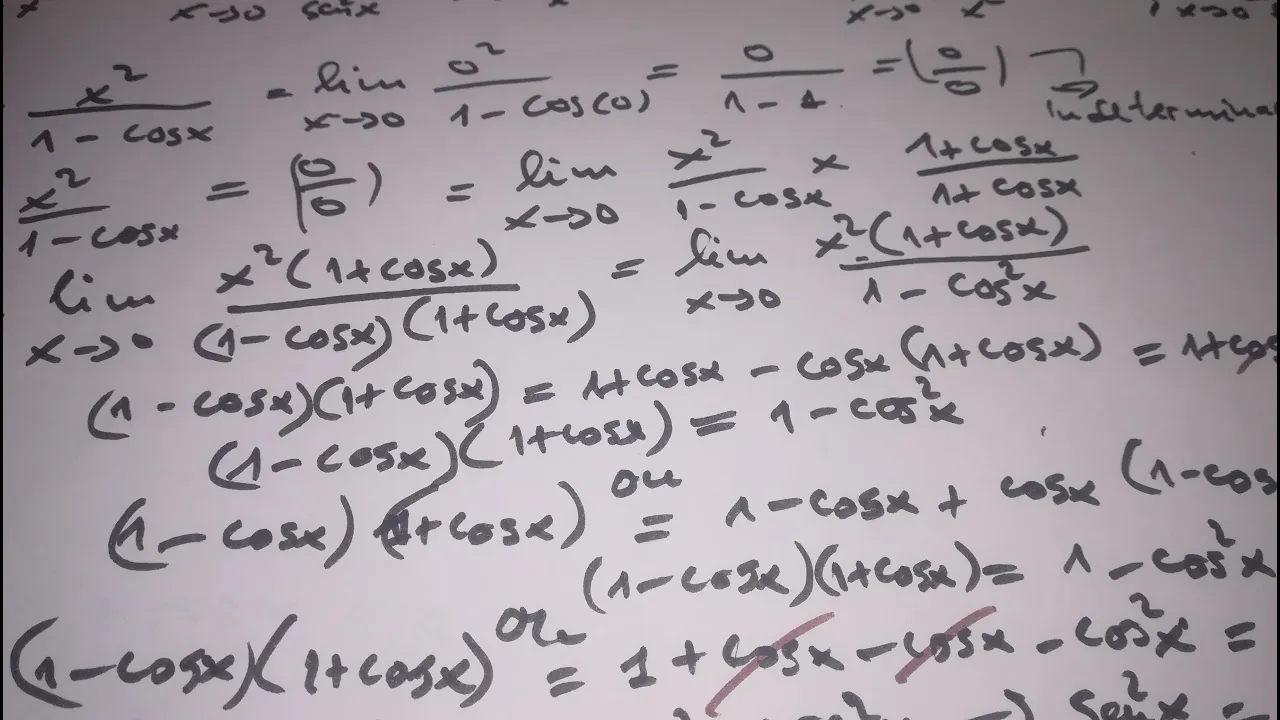 x x→0 senx x x→0 x² x→0
x²/(1 - cosx) = lim x→0 0²/(1 - cos(0)) = 0/(1 - 1) = (0/0) →
x²/(1 - cosx) = (0/0) = lim x→0 x²/(1 - cosx) × (1+cosx)/(1+cosx)
lim x→0 x²(1+cosx)/((1-cosx)(1+cosx)) = lim x→0 x²·(1+cosx)/(1 - cos²x)
(1 - cosx)(1+cosx) = 1+cosx - cosx(1+cosx) = 1+
(1-cosx)(1+cosx) = 1 - cos²x
ou
(1 - cosx)(1+cosx) = 1-cosx + cosx(1-cos
(1-cosx)(1+cosx) = 1 - cos²x
ou
(1-cosx)(1+cosx) = 1 + cosx - cosx - cos²x =
sen²x =